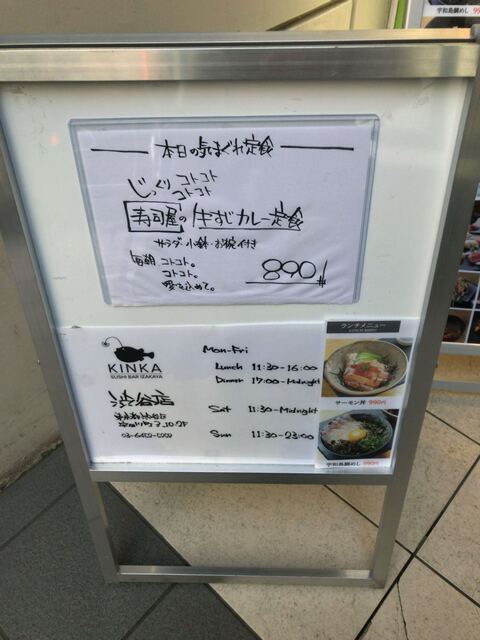 本日の気まぐれ定食
じっくりコトコト
コトコト
寿司屋の牛すじカレー定食
サラダ・小鉢・お椀付き
毎朝コトコト。
コトコト。
愛を込めて。
890
KINKA
SUSHI BAR IZAKAYA
渋谷店
Mon-Fri
Lunch 11:30-16:00
Dinner 17:00-Midnight
Sat 11:30-Midnight
Sun 11:30-23:00
ランチメニュー
サーモン丼 990円
宇和島鯛めし 990円
宇和島鯛めし